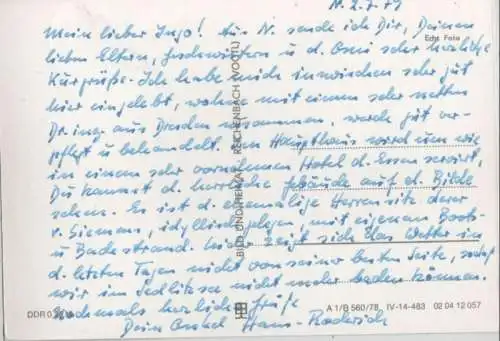 N. 2.7.79
Mein lieber Ingo! Aus N. sende ich Dir, Deinen
lieben Eltern, Geschwistern u. d. Omi sehr herzliche
Kurgrüße. Ich habe mich inzwischen sehr gut
hier eingelebt, wohne mit einem sehr netten
Dr.ing. aus Dresden zusammen, werde gut ver-
pflegt u. behandelt. Im Haupthaus wird uns wie
in einem sehr vornehmen Hotel d. Essen serviert,
Du kannst d. herrliche Gebäude auf d. Bilde
sehen. Es ist d. ehemalige Herrensitz derer
v. Siemens, idyllisch gelegen, mit eigenem Boots-
u. Badestrand. Leider zeigt sich das Wetter in
d. letzten Tagen nicht von seiner besten Seite, sodaß
wir im Sedlitzsee nicht mehr baden können.
Nochmals herzliche Grüße
Dein Onkel Hans-Roderich
Echt Foto
BILD UND HEIMAT REICHENBACH (VOGTL)
DDR 0,
A 1/B 560/78 IV-14-483 02 04 12 057